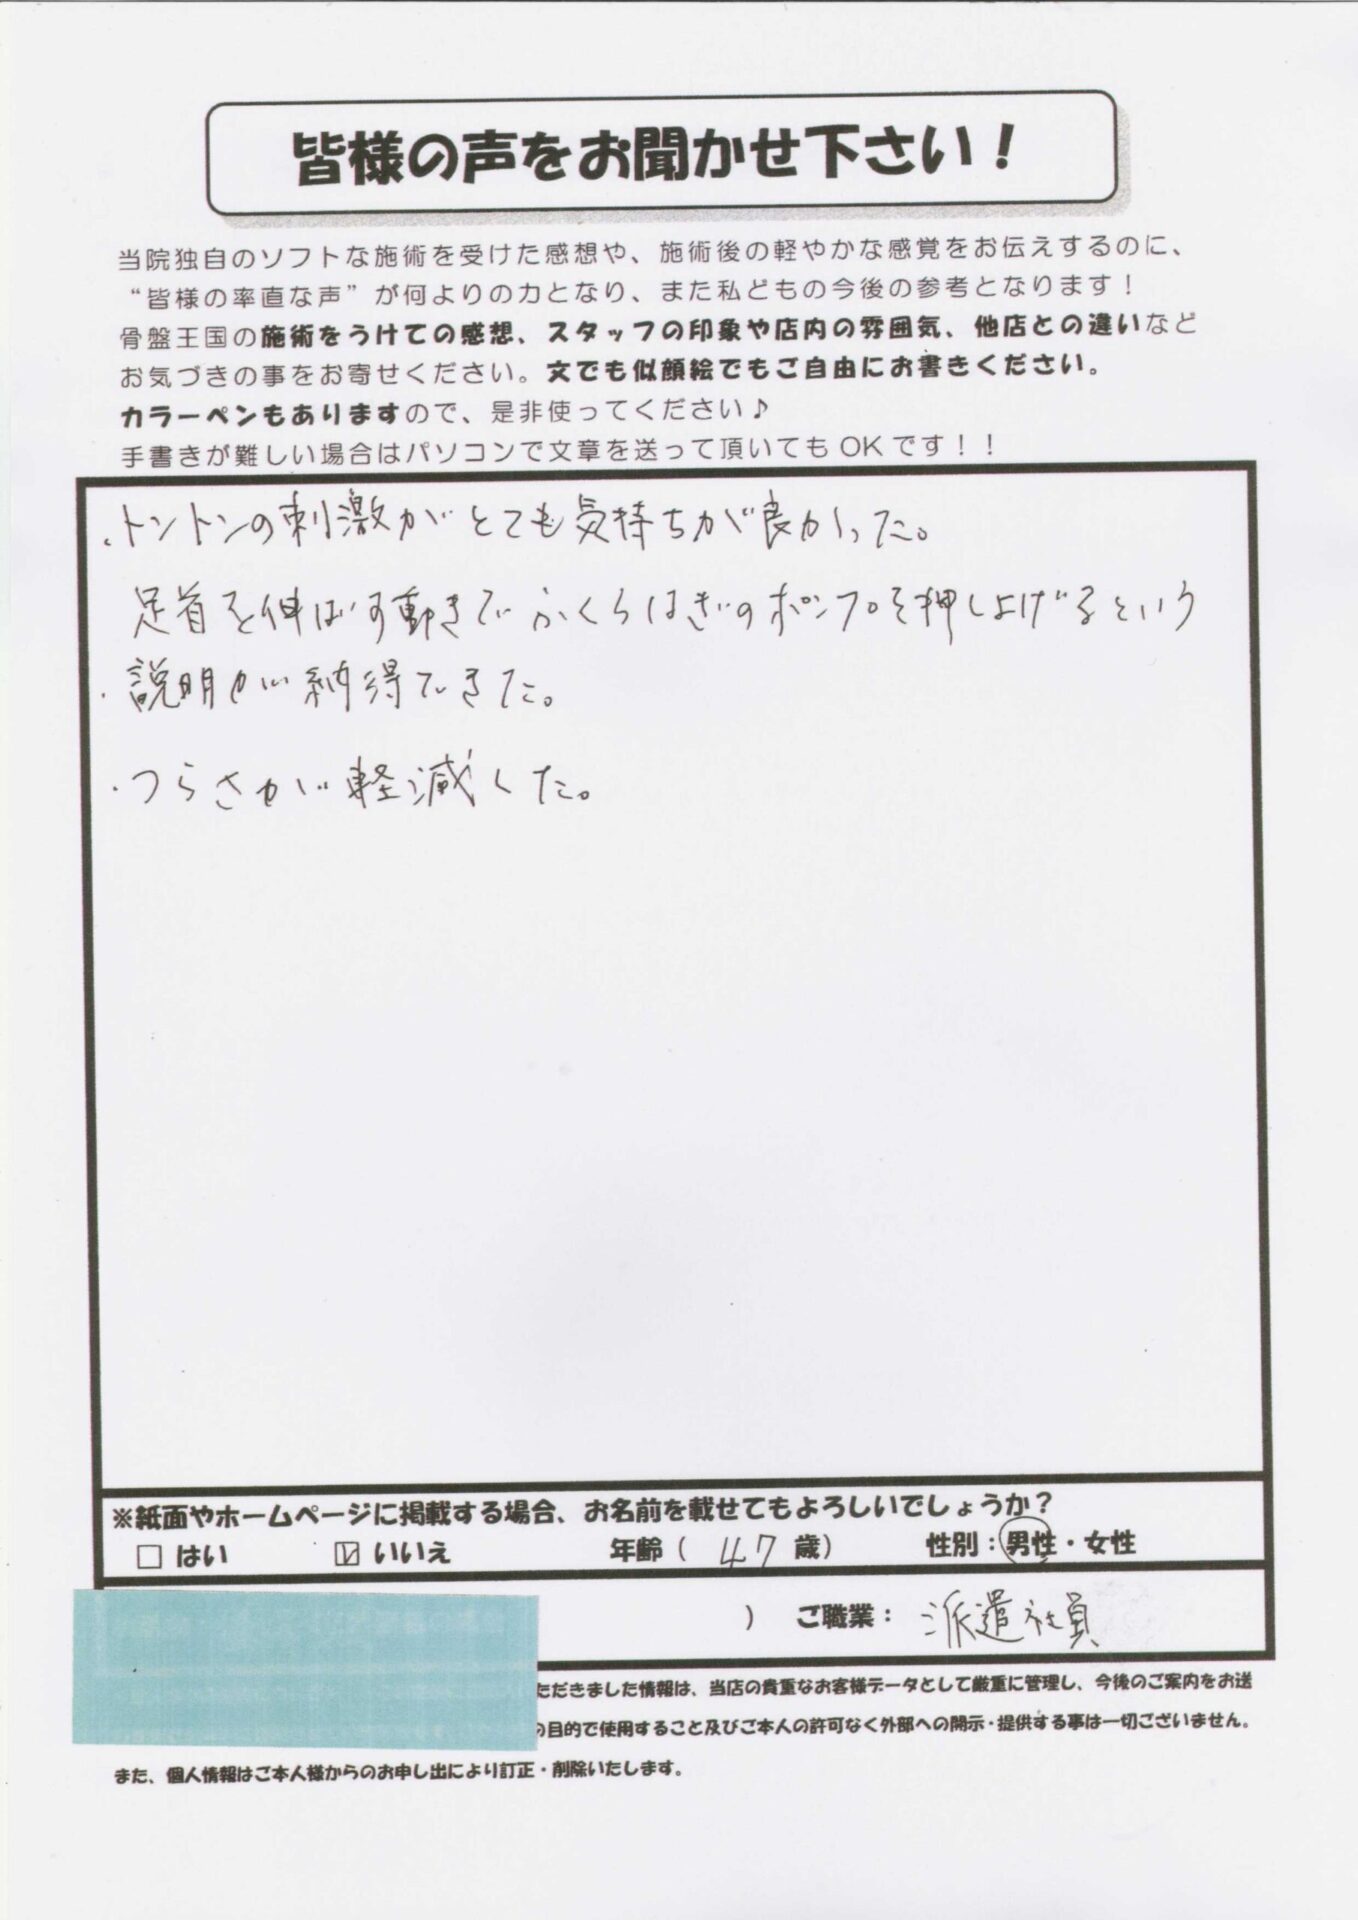 皆様の声をお聞かせ下さい！
当院独自のソフトな施術を受けた感想や、施術後の軽やかな感覚をお伝えするのに、
“皆様の率直な声”が何よりの力となり、また私どもの今後の参考となります！
骨盤王国の施術をうけての感想、スタッフの印象や店内の雰囲気、他店との違いなど
お気づきの事をお寄せください。文でも似顔絵でもご自由にお書きください。
カラーペンもありますので、是非使ってください♪
手書きが難しい場合はパソコンで文章を送って頂いてもOKです！！
・トントンの刺激がとても気持ちが良かった。
足首を伸ばす動きでふくらはぎのポンプを押し上げるという
・説明が納得できた。
・つらさが軽減した。
※紙面やホームページに掲載する場合、お名前を載せてもよろしいでしょうか？
□ はい ☑ いいえ 年齢（ 47 歳） 性別：男性・女性
） ご職業： 派遣社員
ただきました情報は、当店の貴重なお客様データとして厳重に管理し、今後のご案内をお送
の目的で使用すること及びご本人の許可なく外部への開示・提供する事は一切ございません。
また、個人情報はご本人様からのお申し出により訂正・削除いたします。